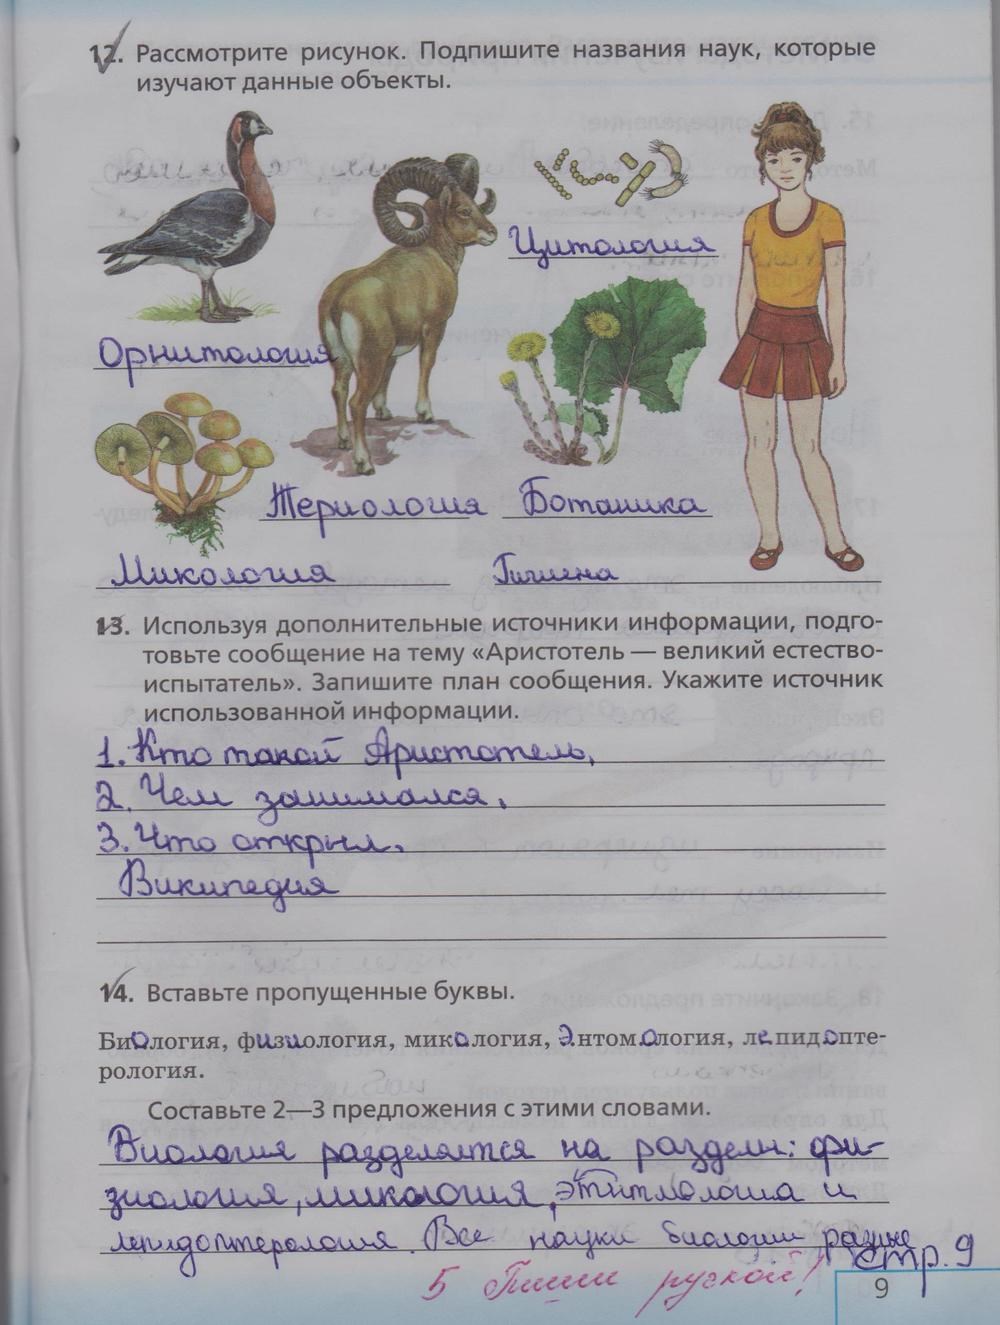 12. Рассмотрите рисунок. Подпишите названия наук, которые
изучают данные объекты.
Цитология
Орнитология
Териология Ботаника
Микология Гигиена
13. Используя дополнительные источники информации, подго-
товьте сообщение на тему «Аристотель — великий естество-
испытатель». Запишите план сообщения. Укажите источник
использованной информации.
1. Кто такой Аристотель.
2. Чем занимался.
3. Что открыл.
Википедия
14. Вставьте пропущенные буквы.
Биология, физиология, микология, Энтомология, лепидопте-
рология.
Составьте 2—3 предложения с этими словами.
Биология разделяется на разделы: фи-
зиология, микология, и
лепидоптерология. Все науки биологии разные
стр. 9
5 Пиши ручкой!
9